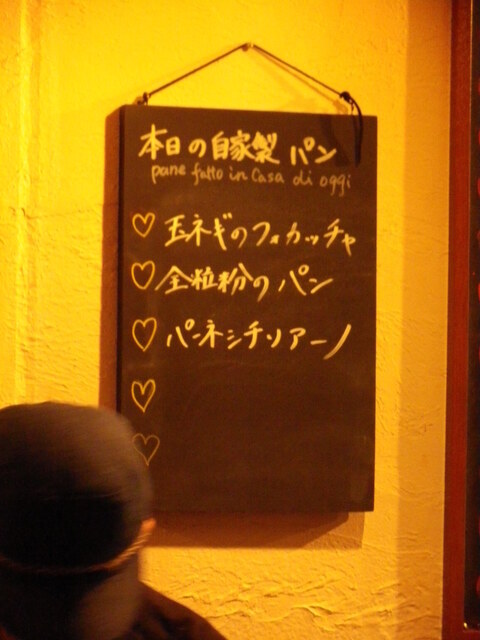 本日の自家製パン
pane fatto in Casa di oggi
♡玉ネギのフォカッチャ
♡全粒粉のパン
♡パンネシチリアーノ
♡
♡